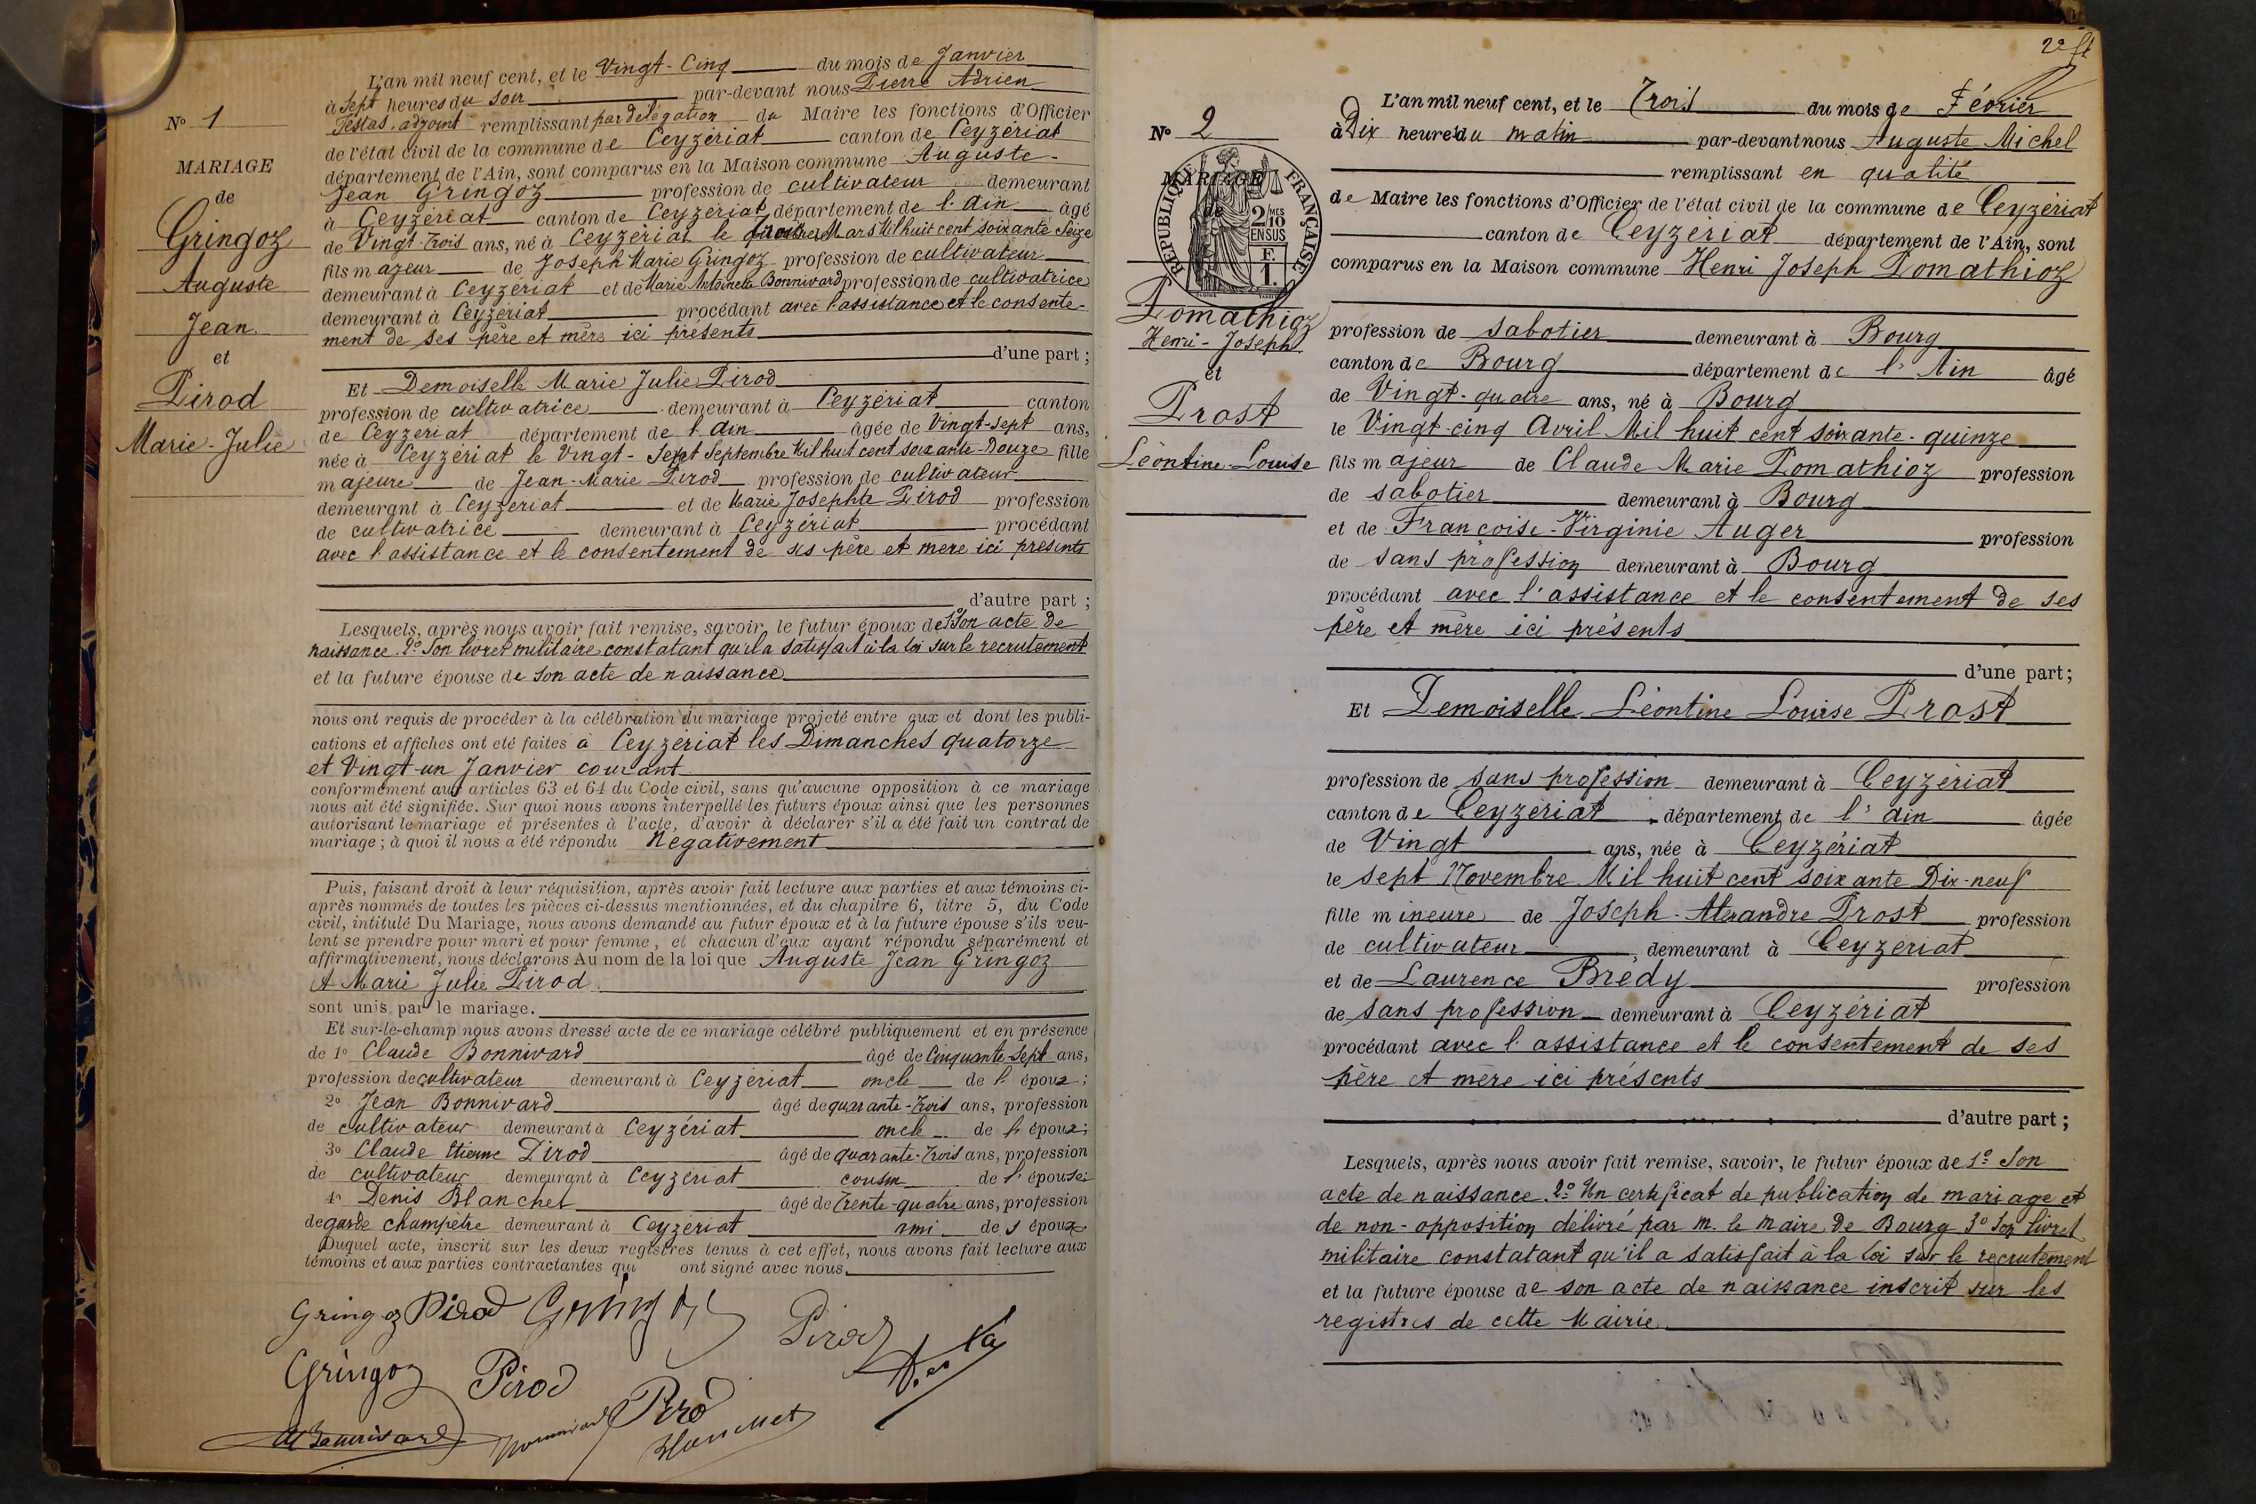 N° 1
MARIAGE
de
Gringoz
Auguste
Jean
et
Pirod
Marie-Julie
L'an mil neuf cent, et le Vingt-Cinq du mois de Janvier
à Sept heures du soir par-devant nous Pierre Adrien
Testas, adjoint remplissant par délégation du Maire les fonctions d'Officier
de l'état civil de la commune de Ceyzériat canton de Ceyzériat
département de l'Ain, sont comparus en la Maison commune Auguste-
Jean Gringoz profession de cultivateur demeurant
à Ceyzériat canton de Ceyzériat, département de l'Ain âgé
de Vingt-trois ans, né à Ceyzériat le Mars Mil huit cent soixante Seize
fils majeur de Joseph Marie Gringoz profession de cultivateur
demeurant à Ceyzériat et de Marie Antoinette Bonnivard profession de cultivatrice
demeurant à Ceyzériat procédant avec l'assistance et le consente-
ment de ses père et mère ici présents
d'une part ;
Et Demoiselle Marie Julie Pirod
profession de cultivatrice demeurant à Ceyzériat canton
de Ceyzériat département de l'Ain âgée de Vingt-sept ans,
née à Ceyzériat le Vingt-Sept Septembre Mil huit cent soixante-Douze fille
majeure de Jean-Marie Pirod profession de cultivateur
demeurant à Ceyzériat et de Marie Josephte Pirod profession
de cultivatrice demeurant à Ceyzériat procédant
avec l'assistance et le consentement de ses père et mère ici présents
d'autre part ;
Lesquels, après nous avoir fait remise, savoir, le futur époux de 1° Son acte de
naissance. 2° Son livret militaire constatant qu'il a satisfait à la loi sur le recrutement
et la future épouse de son acte de naissance
nous ont requis de procéder à la célébration du mariage projeté entre eux et dont les publi-
cations et affiches ont été faites à Ceyzériat les Dimanches quatorze
et Vingt-un Janvier courant
conformément aux articles 63 et 64 du Code civil, sans qu'aucune opposition à ce mariage
nous ait été signifiée. Sur quoi nous avons interpellé les futurs époux ainsi que les personnes
autorisant le mariage et présentes à l'acte, d'avoir à déclarer s'il a été fait un contrat de
mariage ; à quoi il nous a été répondu Négativement
Puis, faisant droit à leur réquisition, après avoir fait lecture aux parties et aux témoins ci-
après nommés de toutes les pièces ci-dessus mentionnées, et du chapitre 6, titre 5, du Code
civil, intitulé Du Mariage, nous avons demandé au futur époux et à la future épouse s'ils veu-
lent se prendre pour mari et pour femme, et chacun d'eux ayant répondu séparément et
affirmativement, nous déclarons Au nom de la loi que Auguste Jean Gringoz
et Marie Julie Pirod
sont unis par le mariage.
Et sur-le-champ nous avons dressé acte de ce mariage célébré publiquement et en présence
de 1° Claude Bonnivard âgé de Cinquante-Sept ans,
profession de cultivateur demeurant à Ceyzériat oncle de l'époux ;
2° Jean Bonnivard âgé de quarante-trois ans, profession
de cultivateur demeurant à Ceyzériat oncle de l'époux ;
3° Claude Etienne Pirod âgé de quarante-trois ans, profession
de cultivateur demeurant à Ceyzériat cousin de l'épouse
4° Denis Blanchet âgé de trente-quatre ans, profession
de garde champêtre demeurant à Ceyzériat ami des époux
Duquel acte, inscrit sur les deux registres tenus à cet effet, nous avons fait lecture aux
témoins et aux parties contractantes qui ont signé avec nous.
Gringoz Pirod Gringoz Pirod
Gringoz Pirod Testas
Bonnivard Bonnivard Pirod
Blanchet
2e ft
N° 2
MARIAGE
de
RÉPUBLIQUE FRANÇAISE
2 MES
10
EN SUS
F.
1.
Pomathioz
Henri-Joseph
et
Prost
Léontine-Louise
L'an mil neuf cent, et le Trois du mois de Février
à Dix heures du matin par-devant nous Auguste Michel
remplissant en qualité
de Maire les fonctions d'Officier de l'état civil de la commune de Ceyzériat
canton de Ceyzériat département de l'Ain, sont
comparus en la Maison commune Henri Joseph Pomathioz
profession de sabotier demeurant à Bourg
canton de Bourg département de l'Ain âgé
de Vingt-quatre ans, né à Bourg
le Vingt-cinq Avril Mil huit cent soixante-quinze
fils majeur de Claude Marie Pomathioz profession
de sabotier demeurant à Bourg
et de Françoise-Virginie Auger profession
de sans profession demeurant à Bourg
procédant avec l'assistance et le consentement de ses
père et mère ici présents
d'une part ;
Et Demoiselle Léontine Louise Prost
profession de sans profession demeurant à Ceyzériat
canton de Ceyzériat département de l'Ain âgée
de Vingt ans, née à Ceyzériat
le sept Novembre Mil huit cent soixante Dix-neuf
fille mineure de Joseph-Alexandre Prost profession
de cultivateur, demeurant à Ceyzériat
et de Laurence Bredy profession
de sans profession demeurant à Ceyzériat
procédant avec l'assistance et le consentement de ses
père et mère ici présents
d'autre part ;
Lesquels, après nous avoir fait remise, savoir, le futur époux de 1° Son
acte de naissance. 2° Un certificat de publication de mariage et
de non-opposition délivré par m. le maire de Bourg 3° Son livret
militaire constatant qu'il a satisfait à la loi sur le recrutement
et la future épouse de son acte de naissance inscrit sur les
registres de cette Mairie